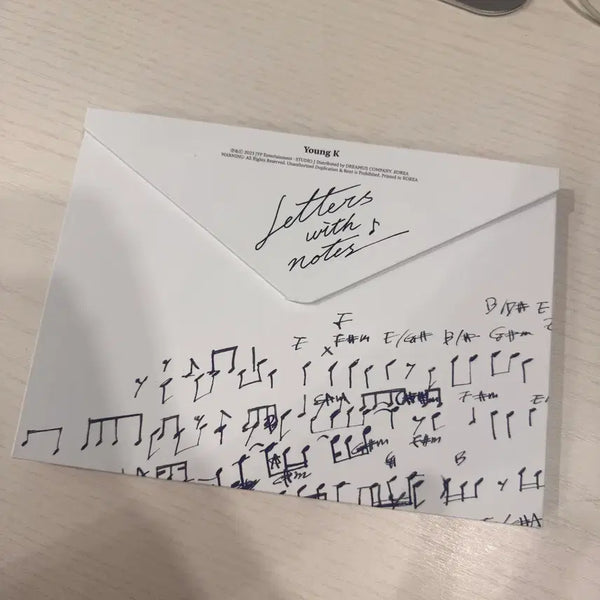 Young K
℗&© 2023 JYP Entertainment · STUDIO J Distributed by DREAMUS COMPANY. KOREA
WARNING: All Rights Reserved. Unauthorized Duplication & Rent is Prohibited. Printed in KOREA
Letters
with
notes
B/D# E
F
E F#m E/G# B/A G#m
G#m F#m E
G#m F#m
G#m G B